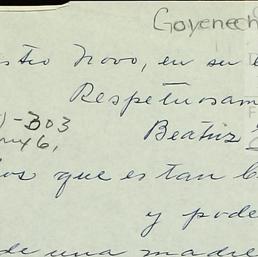 Goyenech
stro novo, en su e
Respetuosam
)-303
Beatriz
6,
los que estan b
y pode
de una madre